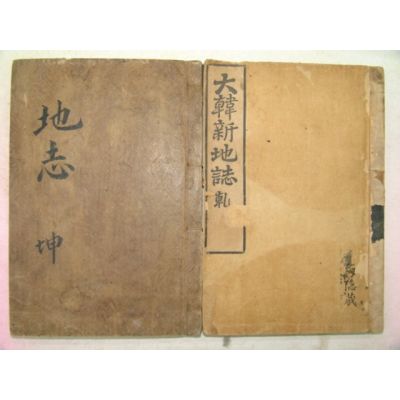 地志 坤
大韓新地誌 乾